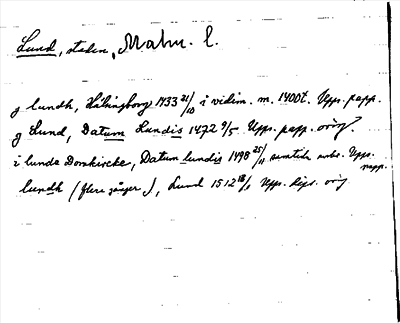 Lund, staden, Malm. l.
j lundh, Hälsingborg 1433 21/10 i vidim. m. 1400t. Upps. papp.
j Lund, Datum Lundis 1472 9/5 Upps. papp. orig.
i lunde Domkircke, Datum lundis 1498 25/11 samtida avskr. Upps. papp.
lundh (flere gånger), Lund 1512 18/1 Upps. orig